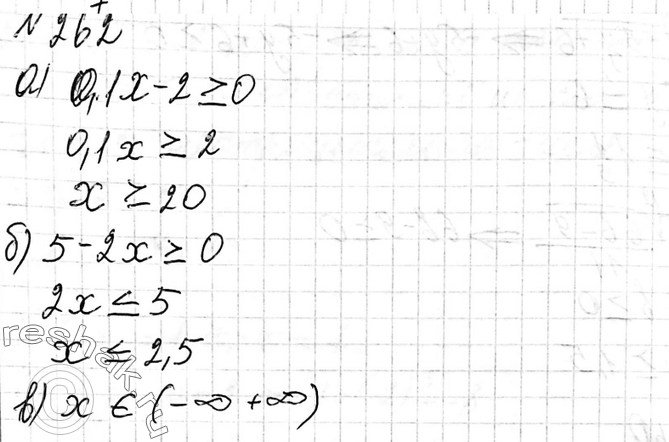 № 262
а) 0,1x - 2 ≥ 0
0,1x ≥ 2
x ≥ 20
б) 5 - 2x ≥ 0
2x ≤ 5
x ≤ 2,5
в) x ∈ (-∞ +∞)
reshak.ru